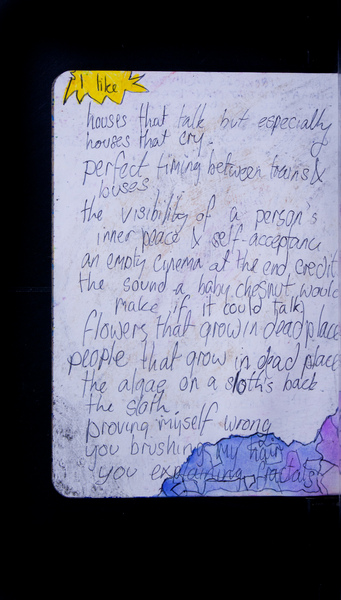 I like
houses that talk but especially
houses that cry.
perfect timing between trains &
buses
the visibility of a person's
inner peace & self-acceptance
an empty cinema at the end credit
the sound a baby chesnut would
make if it could talk
flowers that grow in dead place
people that grow in dead place
the algae on a sloth's back
the sloth
proving myself wrong
you brushing my hair
you explaining fractals